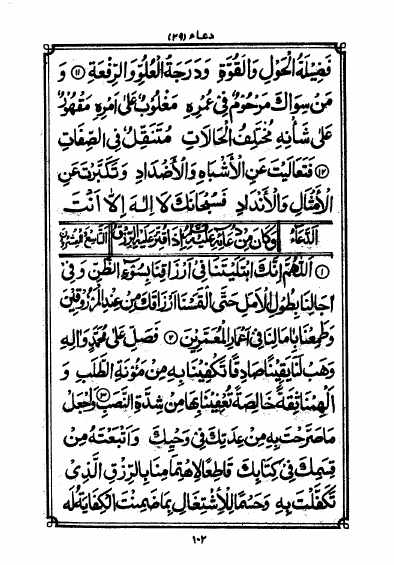 دعاء (٢٩)
فَضِيلَةُ الْحَوْلِ وَالْقُوَّةِ وَدَرَجَةُ الْعُلُوِّ وَالرِّفْعَةِ ⑪ وَ
مَنْ سِوَاكَ مَرْحُومٌ فِي عُمْرِهِ مَغْلُوبٌ عَلَى اَمْرِهِ مَقْهُورٌ
عَلَى شَأْنِهِ مُخْتَلِفُ الْحَالَاتِ مُتَنَقِّلٌ فِي الصِّفَاتِ
⑫ فَتَعَالَيْتَ عَنِ الْأَشْبَاهِ وَالْأَضْدَادِ وَتَكَبَّرْتَ عَنِ
الْأَمْثَالِ وَالْأَنْدَادِ فَسُبْحَانَكَ لَا اِلٰهَ اِلَّا اَنْتَ
الدُّعَاءُ وَكَانَ مِنْ دُعَائِهِ عَلَيْهِ السَّلَامُ اِذَا قُتِّرَ عَلَيْهِ الرِّزْقُ التَّاسِعُ وَالْعِشْرُونَ
① اَللّٰهُمَّ اِنَّكَ ابْتَلَيْتَنَا فِي اَرْزَاقِنَا بِسُوءِ الظَّنِّ وَفِي
اٰجَالِنَا بِطُولِ الْاَمَلِ حَتَّى الْتَمَسْنَا اَرْزَاقَكَ مِنْ عِنْدِ الْمَرْزُوقِينَ
وَطَمِعْنَا بِاٰمَالِنَا فِي اَعْمَارِ الْمُعَمَّرِينَ ② فَصَلِّ عَلَى مُحَمَّدٍ وَاٰلِهِ
وَهَبْ لَنَا يَقِينًا صَادِقًا تَكْفِينَا بِهِ مِنْ مَئُونَةِ الطَّلَبِ وَ
اَلْهِمْنَا ثِقَةً خَالِصَةً تُعْفِينَا بِهَا مِنْ شِدَّةِ النَّصَبِ ③ وَاجْعَلْ
مَا صَرَّحْتَ بِهِ مِنْ عِدَتِكَ فِي وَحْيِكَ وَاَتْبَعْتَهُ مِنْ
قَسَمِكَ فِي كِتَابِكَ قَاطِعًا لِاهْتِمَامِنَا بِالرِّزْقِ الَّذِي
تَكَفَّلْتَ بِهِ وَحَسْمًا لِلْاِشْتِغَالِ بِمَا ضَمِنْتَ الْكِفَايَةَ لَهُ
١٠٢